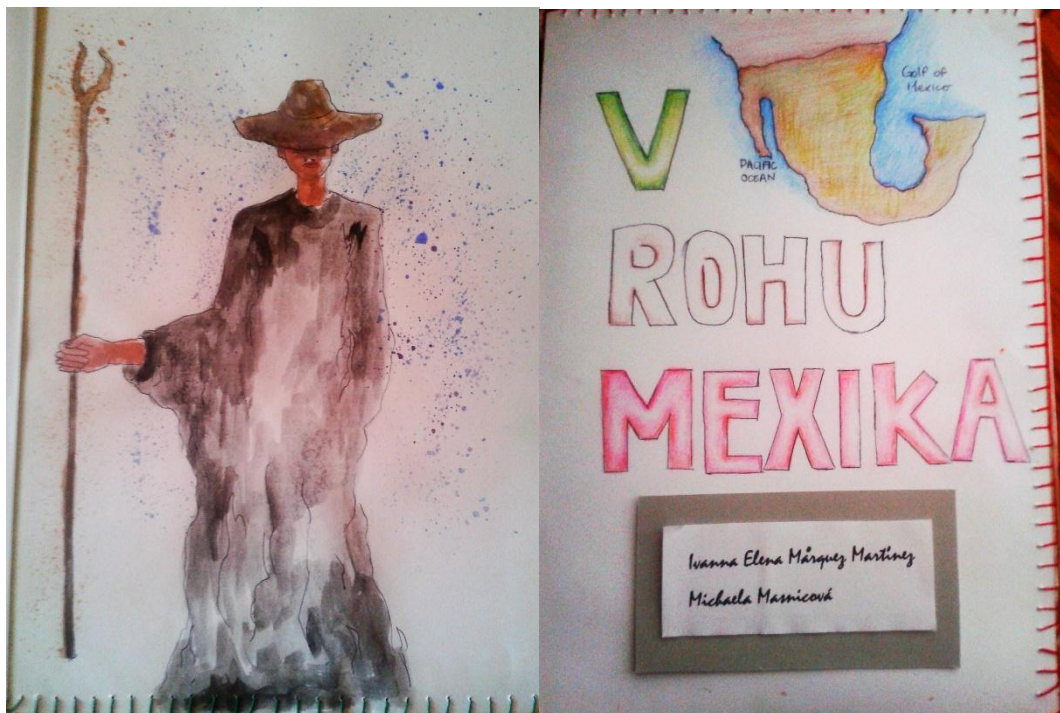 V
Golf of
Mexico
PACIFIC
OCEAN
ROHU
MEXIKA
Ivanna Elena Márquez Martínez
Michaela Masnicová